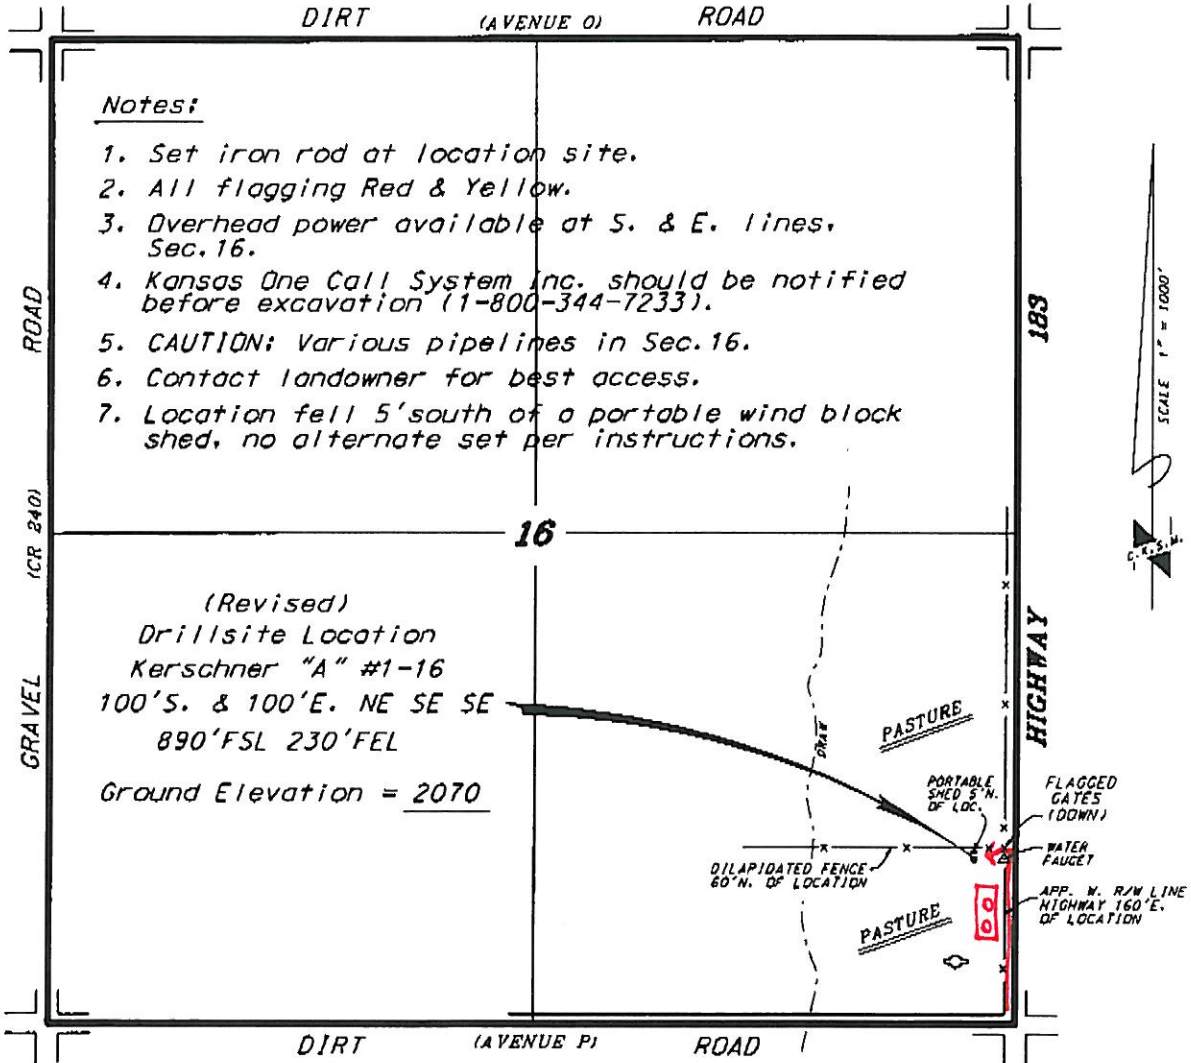 DIRT (AVENUE O) ROAD
Notes:
1. Set iron rod at location site.
2. All flagging Red & Yellow.
3. Overhead power available at S. & E. lines,
Sec.16.
4. Kansas One Call System Inc. should be notified
before excavation (1-800-344-7233).
5. CAUTION: Various pipelines in Sec.16.
6. Contact landowner for best access.
7. Location fell 5'south of a portable wind block
shed, no alternate set per instructions.
GRAVEL (CR 240) ROAD
HIGHWAY 183
SCALE 1" = 1000'
C.K.S.M.
16
(Revised)
Drillsite Location
Kerschner "A" #1-16
100'S. & 100'E. NE SE SE
890'FSL 230'FEL
Ground Elevation = 2070
DRAW
PASTURE
PORTABLE
SHED 5'N.
OF LOC.
FLAGGED
GATES
(DOWN)
WATER
FAUCET
DILAPIDATED FENCE
60'N. OF LOCATION
APP. W. R/W LINE
HIGHWAY 160'E.
OF LOCATION
PASTURE
DIRT (AVENUE P) ROAD